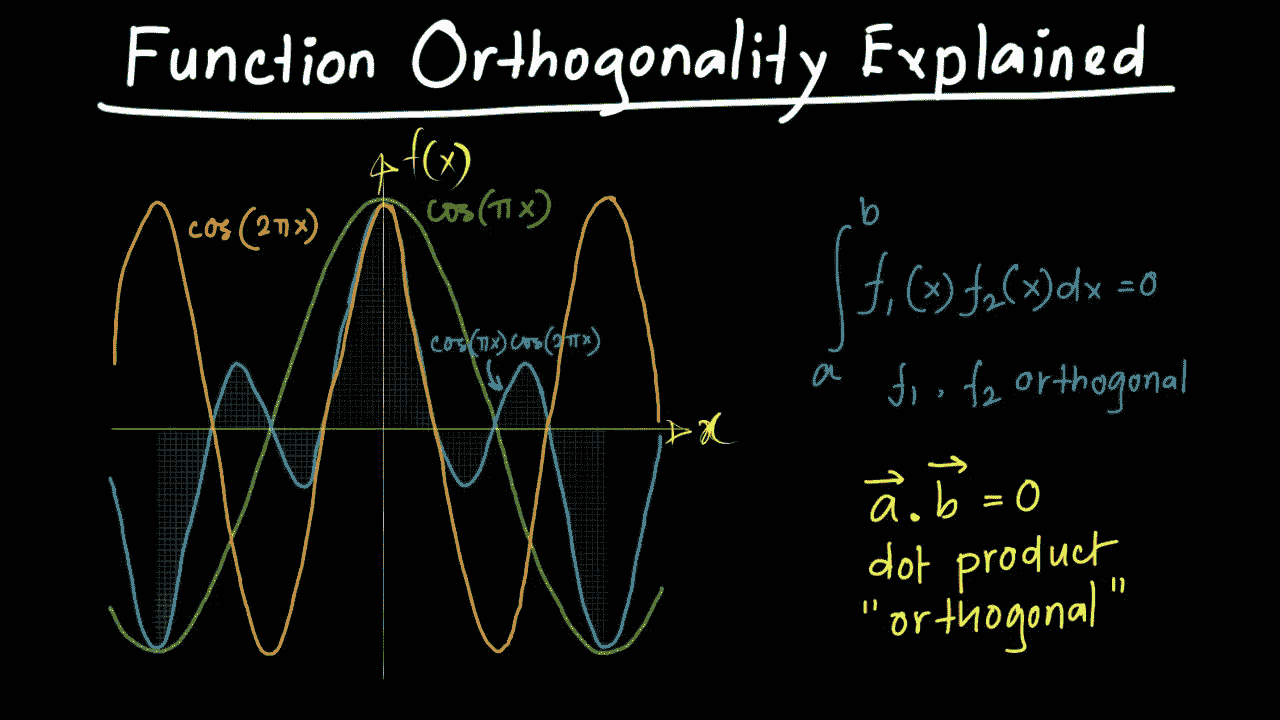 Function Orthogonality Explained
f(x)
cos(2πx)
cos(πx)
cos(πx)cos(2πx)
x
∫ₐᵇ f₁(x) f₂(x)dx = 0
f₁, f₂ orthogonal
a⃗ . b⃗ = 0
dot product
"orthogonal"